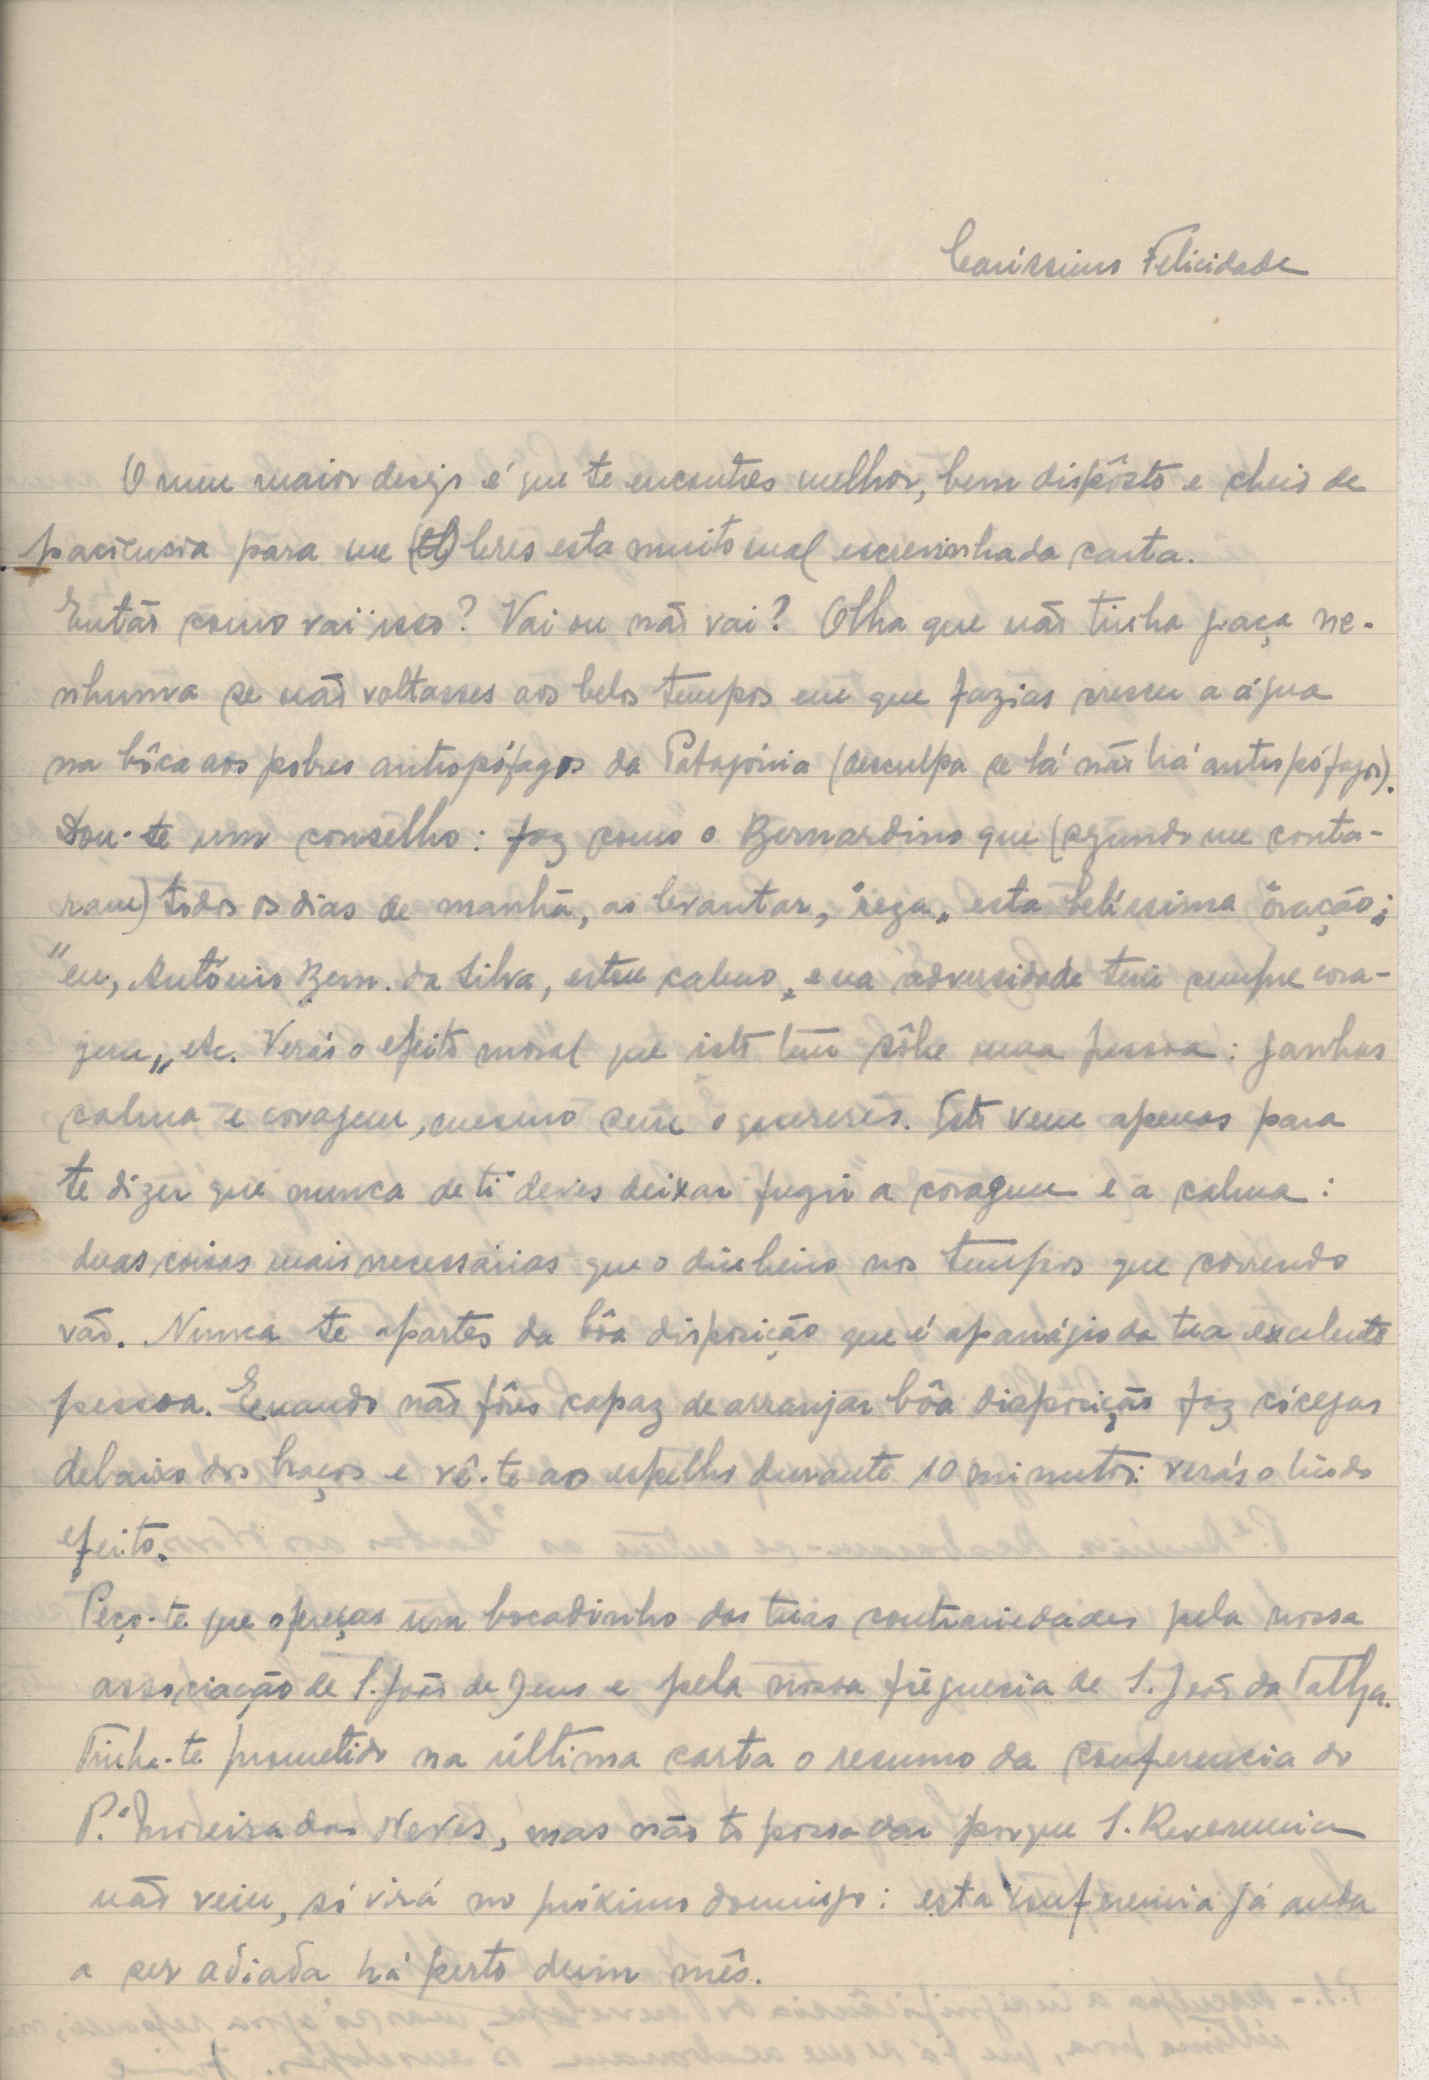 Caríssimo Felicidade
O meu maior desejo é que te encontres melhor, bem dispôsto e cheio de
paciencia para me leres esta muito mal escrevinhada carta.
Então como vai isso? Vai ou não vai? Olha que não tinha graça ne-
nhuma se não voltasses aos belos tempos em que fazias crescer a água
na bôca aos pobres antropófagos da Patagónia (desculpa se lá não há antropófagos).
Dou-te um conselho: faz como o Bernardino que (segundo me conta-
ram) todos os dias de manhã, ao levantar, "reza" esta belíssima oração:
"eu, António Bern. da Silva, estou calmo, e na adversidade terei sempre cora-
gem" etc. Verás o efeito moral que isto tem sôbre uma pessoa: ganhas
calma e coragem, mesmo sem o quereres. Isto vem apenas para
te dizer que nunca de ti deves deixar fugir a coragem e a calma:
duas coisas mais necessárias que o dinheiro nos tempos que correndo
vão. Nunca te apartes da bôa disposição que é apanágio da tua excelente
pessoa. Quando não fôres capaz de arranjar bôa disposição faz cócegas
debaixo dos braços e vê-te ao espelho durante 10 minutos: verás o lindo
efeito.
Peço-te que ofereças um bocadinho das tuas contrariedades pela nossa
associação de S. João de Deus e pela nossa frèguesia de S. João da Talha.
Tinha-te prometido na última carta o resumo da conferencia do
P.e Moreira das Neves, mas não to posso dar porque S. Reverencia
não veiu, só virá no próximo domingo: esta conferencia já anda
a ser adiada há perto dum mês.